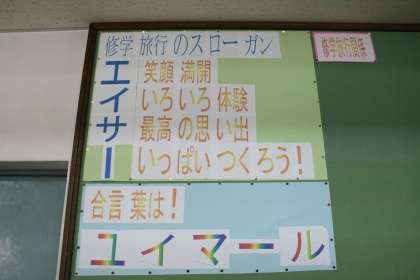 修学旅行のスローガン
エイサー
笑顔満開
いろいろ体験
最高の思い出
いっぱいつくろう!
合言葉は!
ユイマール
修学旅行関係